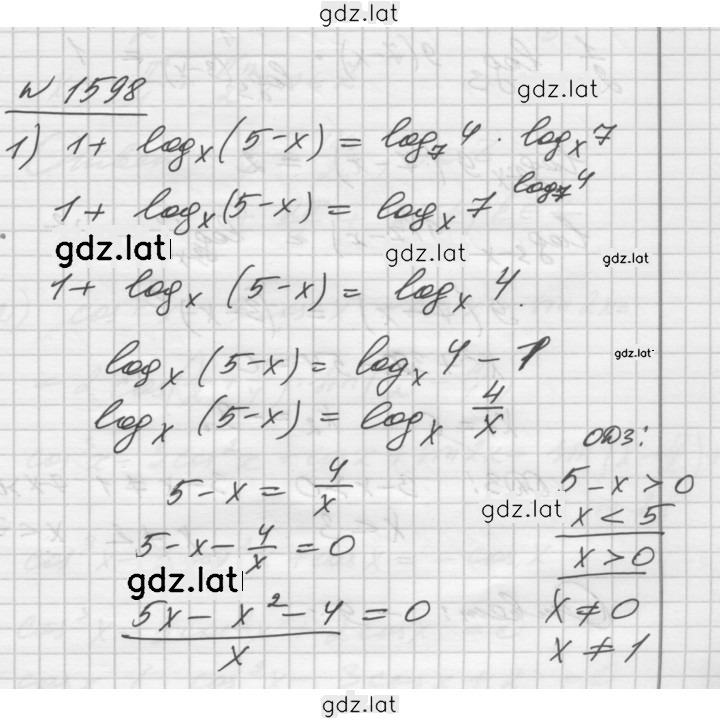 gdz.lat
№ 1598
gdz.lat
1) 1 + logₓ(5-x) = log₇4 · logₓ7
1 + logₓ(5-x) = logₓ7^(log₇4)
gdz.lat
gdz.lat
gdz.lat
1 + logₓ(5-x) = logₓ4.
logₓ(5-x) = logₓ4 - 1
gdz.lat
logₓ(5-x) = logₓ 4/x
ОДЗ:
5-x = 4/x
5-x > 0
gdz.lat
x < 5
5-x - 4/x = 0
x > 0
gdz.lat
(5x - x² - 4)/x = 0
x ≠ 0
x ≠ 1
gdz.lat